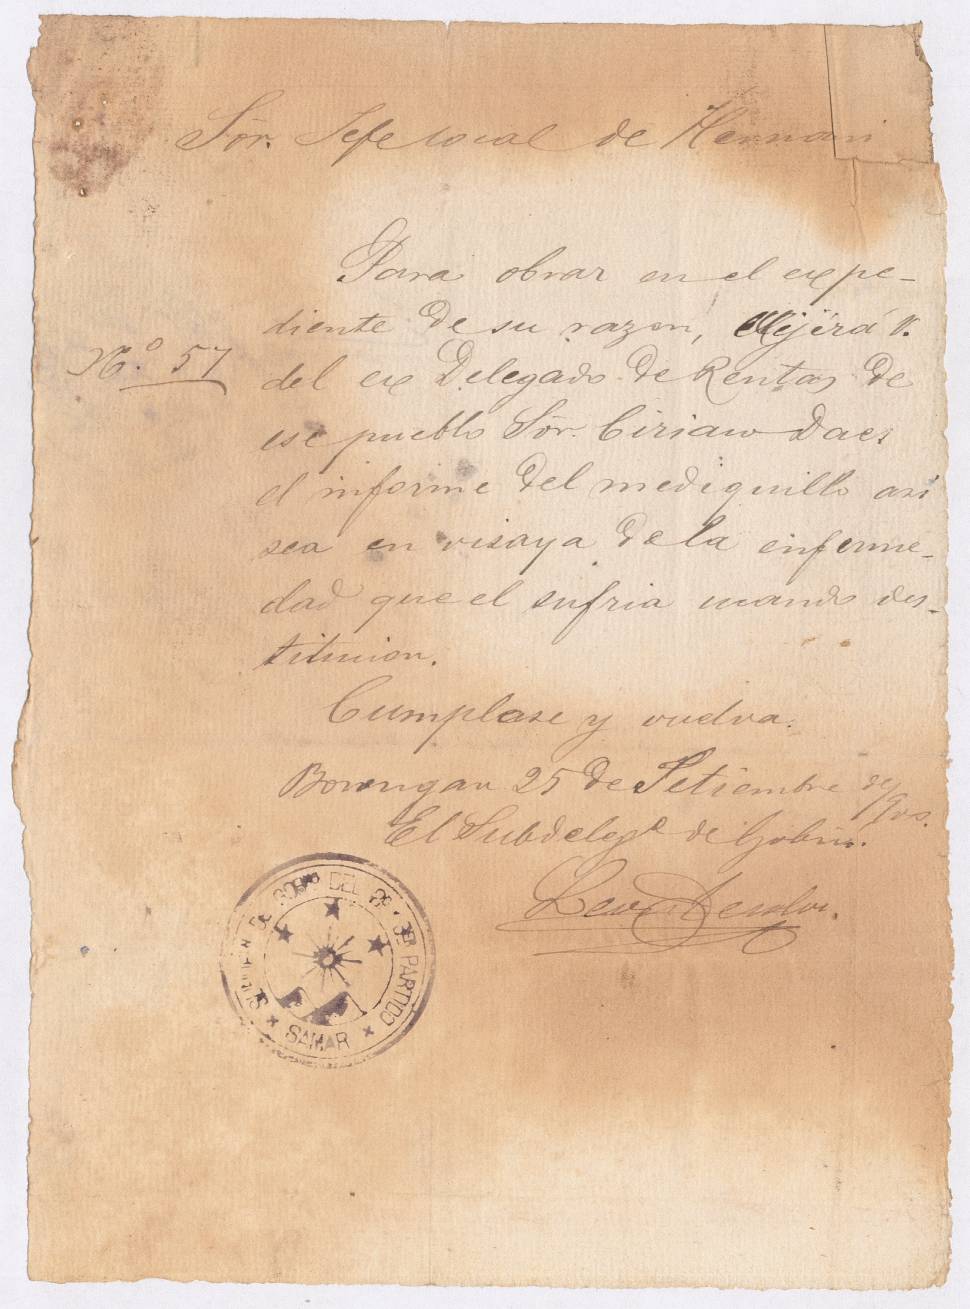 Sór. Jefe local de Hernani
Para obrar en el expe-
diente de su razon, exijirá V.
Nº. 57
del ex Delegado de Rentas de
ese pueblo Sór. Ciriaco Daes
el informe del mediquillo asi
sea en visaya de la enferme-
dad que el sufria cuando des-
titucion.
Cumplase y vuelva.
Borongan 25 de Setiembre de
El Subdelegº de Gobno.
DEL 2º Y 3ER PARTIDO
SAMAR